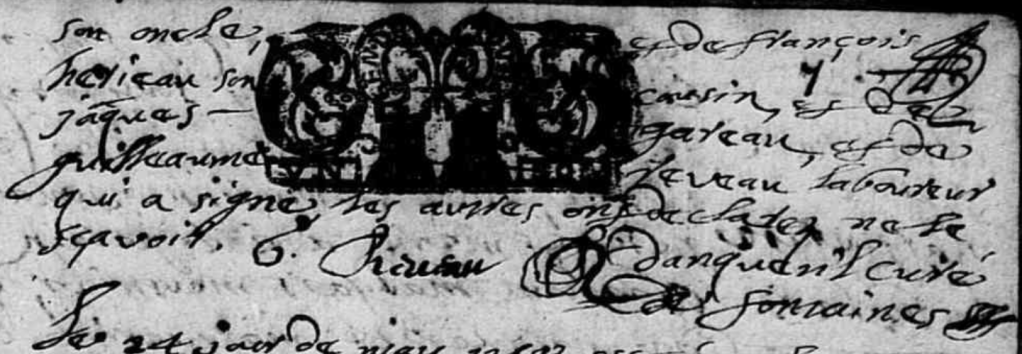 son oncle, et de françois
herieau son cousin, et de
jaques gareau, et de
guilleaume reveau laboureur
qui a signé, les autres ont declaré ne le
sçavoir. G. Riveau danquenil curé
de fontaines
Le 24 jour de may